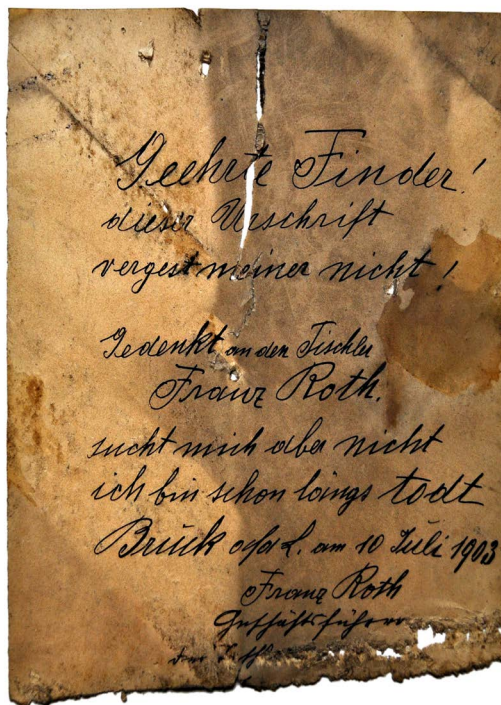 Geehrte Finder!
dieser Urschrift
vergest meiner nicht!
Gedenkt an den Tischler
Franz Roth.
sucht mich aber nicht
ich bin schon längs todt
Bruck a/d L. am 10 Juli 1903
Franz Roth
Geschäftsführer